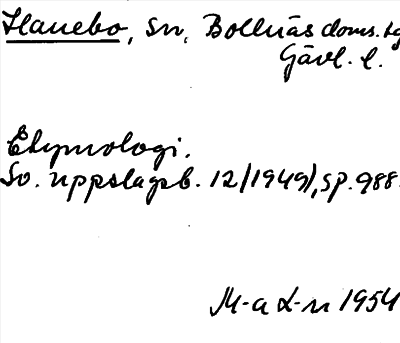 Hanebo, sn, Bollnäs doms.
Gävl. l.
Etymologi.
Sv. uppslagsb. 12 (1949), sp. 988.
M-a L-n 1954